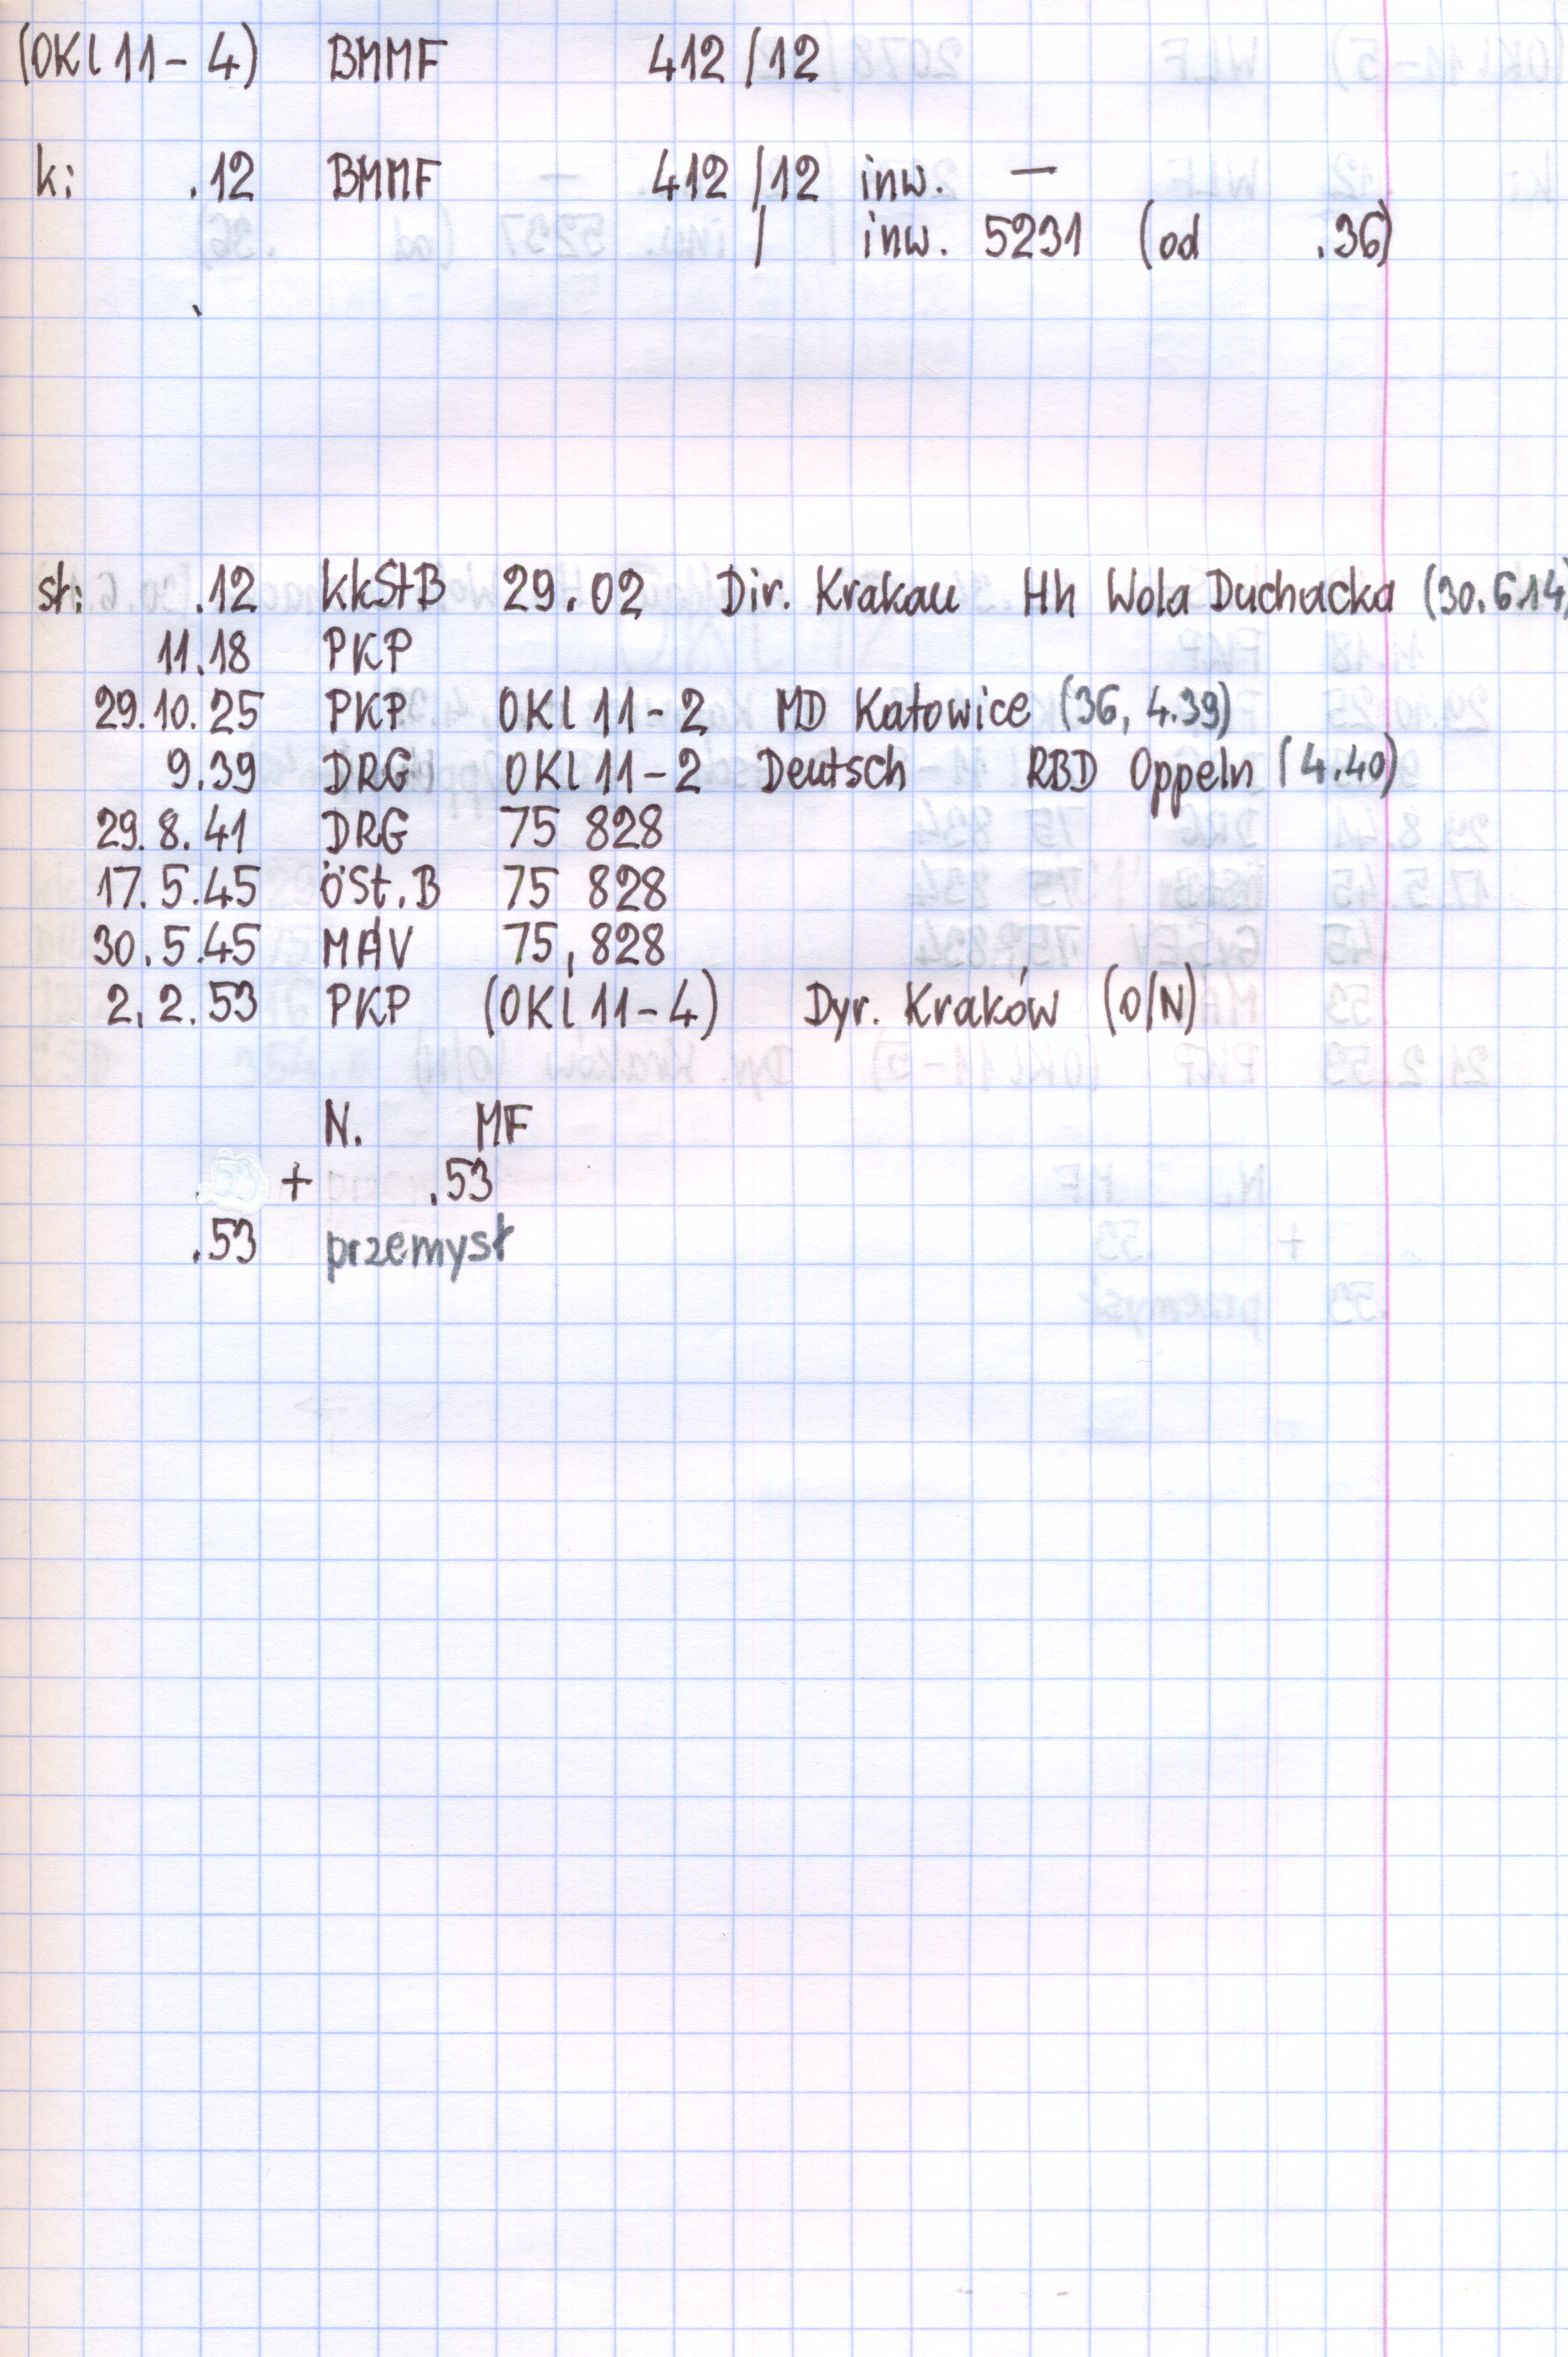 (OKl 11-4) BMMF 412/12
k: .12 BMMF 412/12 inw. —
/ inw. 5231 (od .36)
st: .12 kkStB 29.02 Dir. Krakau Hh Wola Duchacka (30.6.14)
11.18 PKP
29.10.25 PKP OKl 11-2 MD Katowice (36, 4.39)
9.39 DRG OKl 11-2 Deutsch RBD Oppeln (4.40)
29.8.41 DRG 75 828
17.5.45 ÖSt.B 75 828
30.5.45 MÁV 75,828
2.2.53 PKP (OKl 11-4) Dyr. Kraków (O/N)
N. MF
+ .53
.53 przemysł